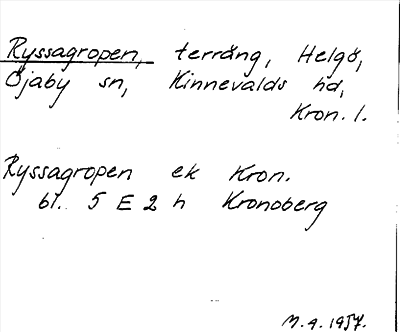 Ryssagropen, terräng, Helgö,
Öjaby sn, Kinnevalds hd,
Kron. l.
Ryssagropen ek Kron.
bl. 5 E 2 h Kronoberg
M.A. 1957.